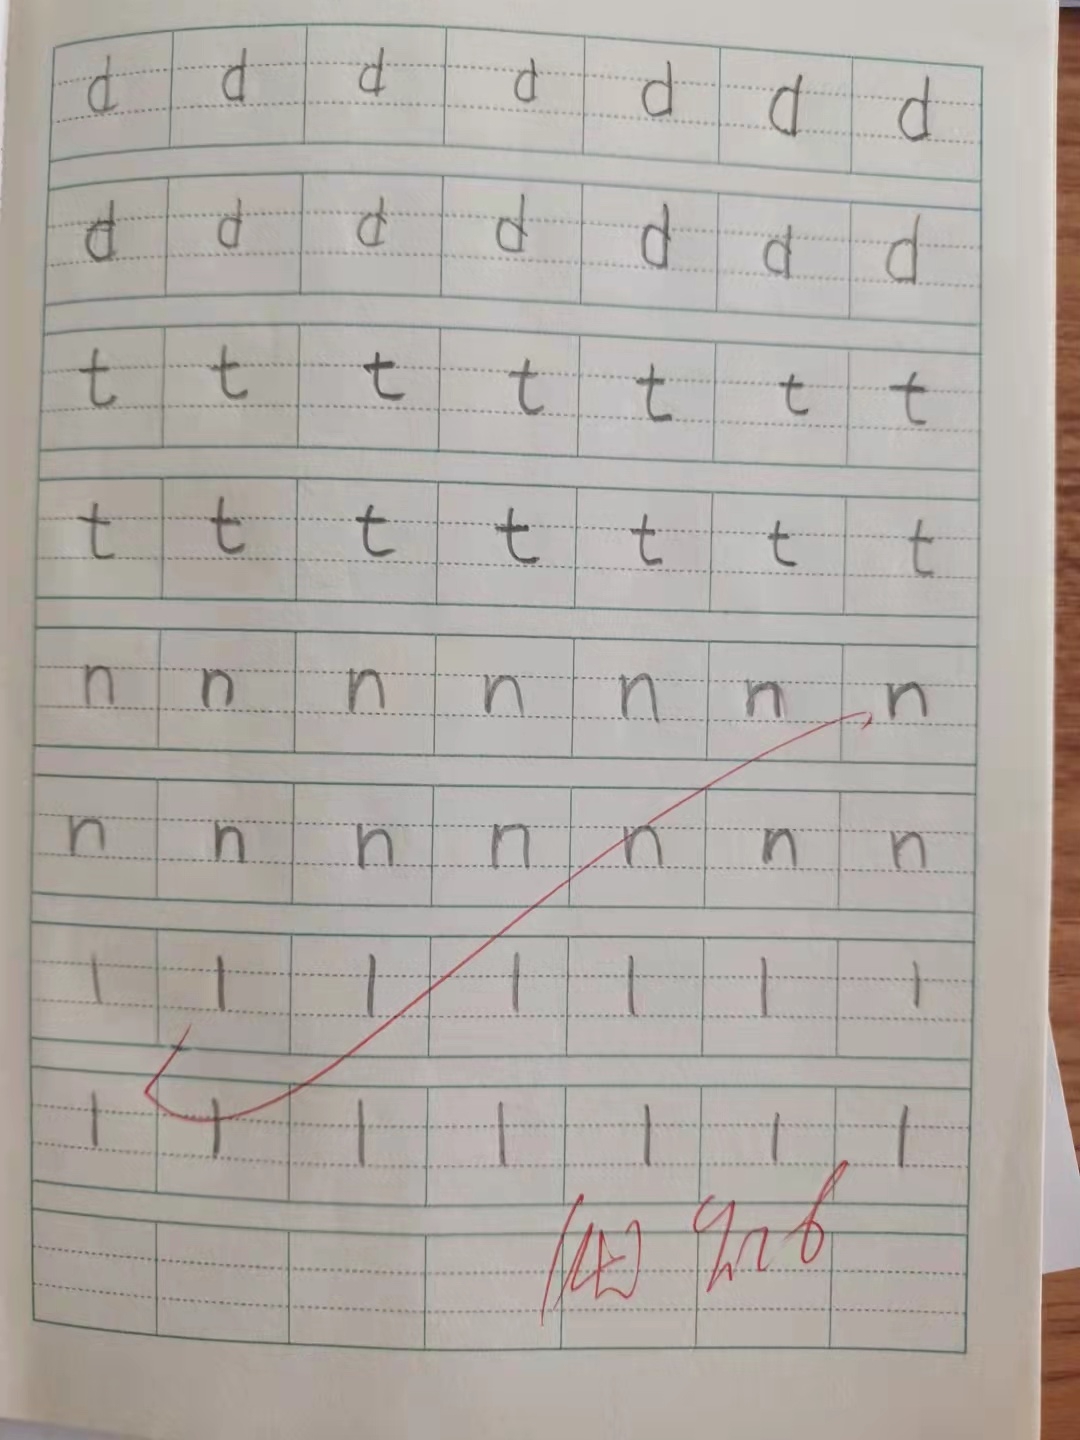 d d d d d d d
d d d d d d d
t t t t t t t
t t t t t t t
n n n n n n n
n n n n n n n
l l l l l l l
l l l l l l l